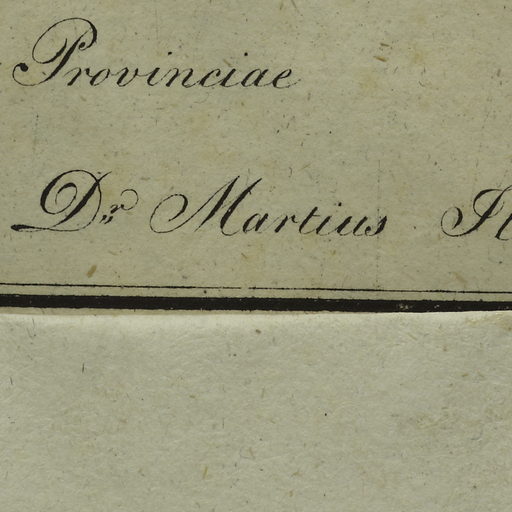 Provinciae
Dr Martius